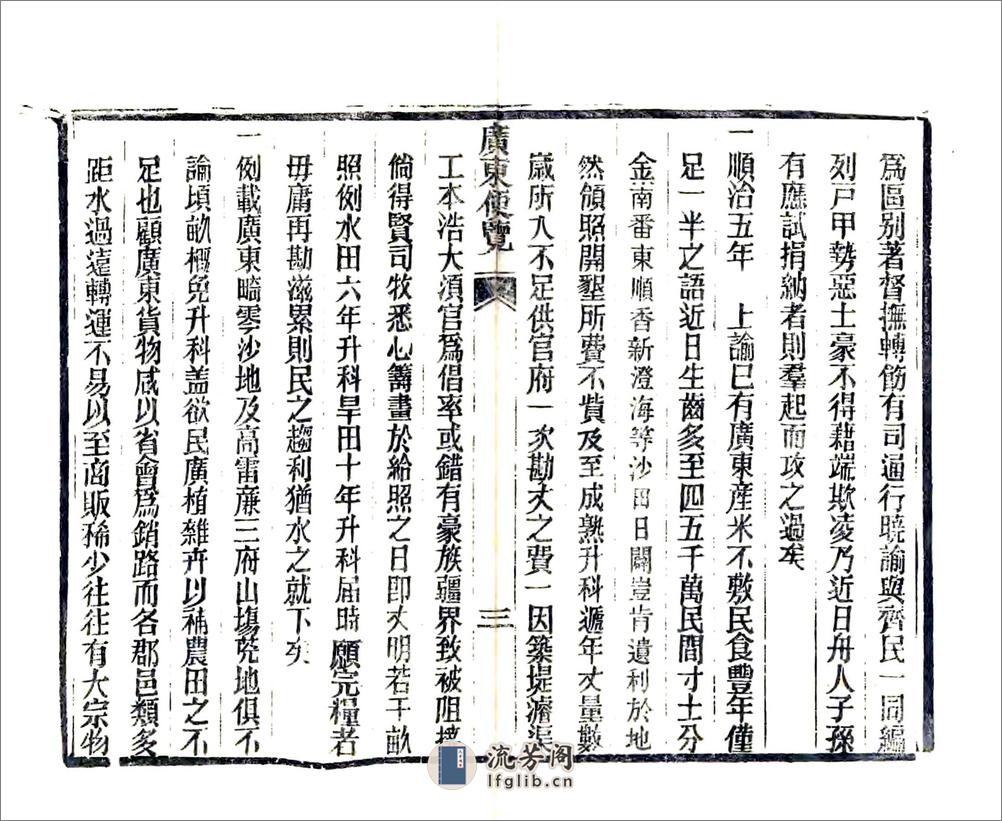 爲區别著督撫轉飭有司遍行曉諭與齊民一同編
列戸甲勢惡土豪不得藉端欺凌乃近日舟人子孫
有應試捐納者則羣起而攻之過矣
一順治五年　上諭已有廣東産米不敷民食豐年僅
足一半之語近日生齒多至四五千萬民間寸土分
金南番東順香新澄海等沙田日闢豈肯遺利於地
然領照開墾所費不貲及至成熟升科遞年丈量數
歲所入不足供官府一次勘丈之費一因築堤濬渠
廣東便覽
三
工本浩大須官爲倡率或錯有豪族疆界致被阻撓
倘得賢司牧悉心籌畫於給照之日即丈明若干畝
照例水田六年升科旱田十年升科屆時願完糧者
毋庸再勘滋累則民之趨利猶水之就下矣
一例載廣東畸零沙地及高雷廉三府山塲荒地俱不
論頃畝概免升科盖欲民廣植雜卉以補農田之不
足也顧廣東貨物咸以省會爲銷路而各郡邑類多
距水過遠轉運不易以至商販稀少往往有大宗物
流芳阁
lfglib.cn